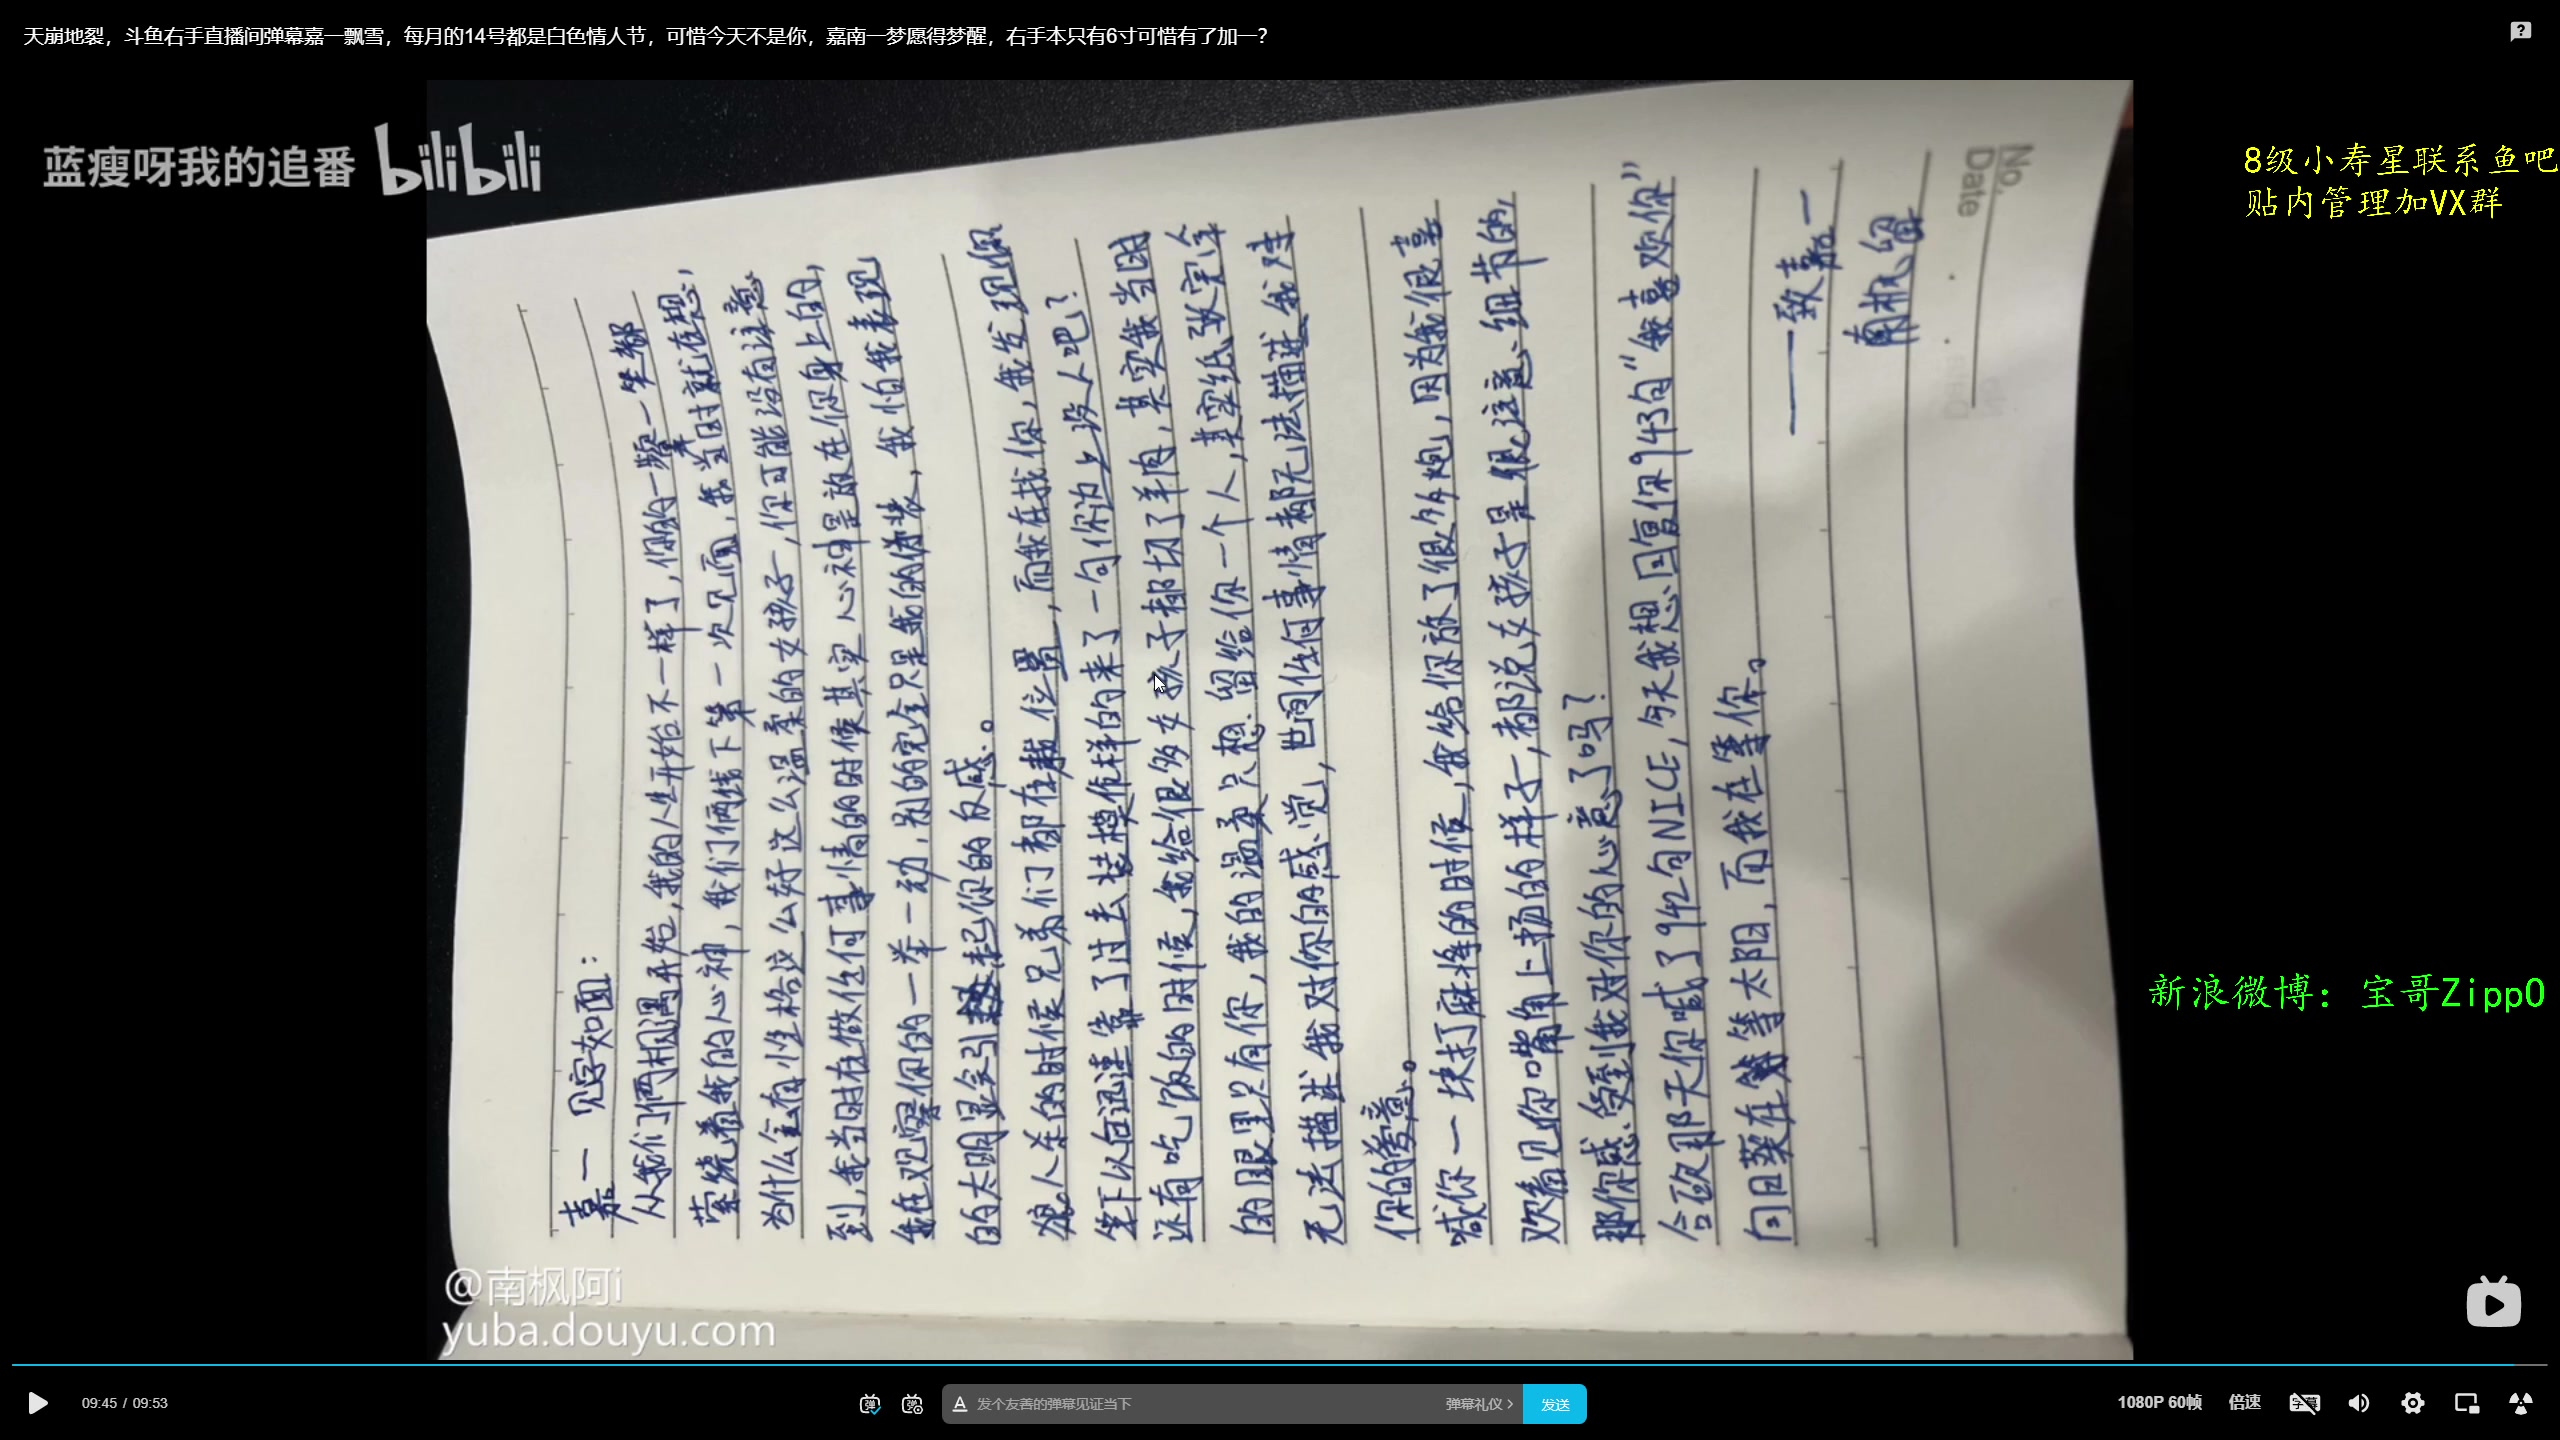 天崩地裂，斗鱼右手直播间弹幕嘉一飘雪，每月的14号都是白色情人节，可惜今天不是你，嘉南一梦愿得梦醒，右手本只有6寸可惜有了加一？
蓝瘦呀我的追番 bilibili
8级小寿星联系鱼吧
贴内管理加VX群
新浪微博：宝哥ZippO
No.
Date
嘉一 见字如面：
从我们俩相遇开始，我的人生开始不一样了，你的一颦一笑都
萦绕着我的心神，我们俩线下第一次见面，我当时就在想，
为什么会有性格这么好这么温柔的女孩子，你可能没有注意
到，我当时在做任何事情的时候其实心神是放在你身上的，
我在观察你的一举一动，别的完全只是我的伪装，我怕我表现
的太明显会引起你的反感。
狼人杀的时候兄弟们都在找位置，而我在找你，我发现你
坐下以后迅速靠了过去装模作样的来了一句你边上没人吧？
还有吃饭的时候，我给很多女孩子都切了羊肉，其实我当时
的眼里只有你，我的温柔只想留给你一个人，其实纸张完全
无法描述我对你的感觉，世间任何事情都无法描述我对
你的爱意。
喊你一块打麻将的时候，我给你放了很多炮，因为我很喜
欢看见你嘴角上扬的样子，都说女孩子是很注意细节的，
那你感受到我对你的心意了吗？
合砍那天你喊了942句NICE，今天我想回复你943句“我喜欢你”
向日葵在等太阳，而我在等你。
——致嘉一
南枫留
@南枫阿i
yuba.douyu.com
09:45 / 09:53
弹
弹
A 发个友善的弹幕见证当下
弹幕礼仪
发送
1080P 60帧
倍速
字幕